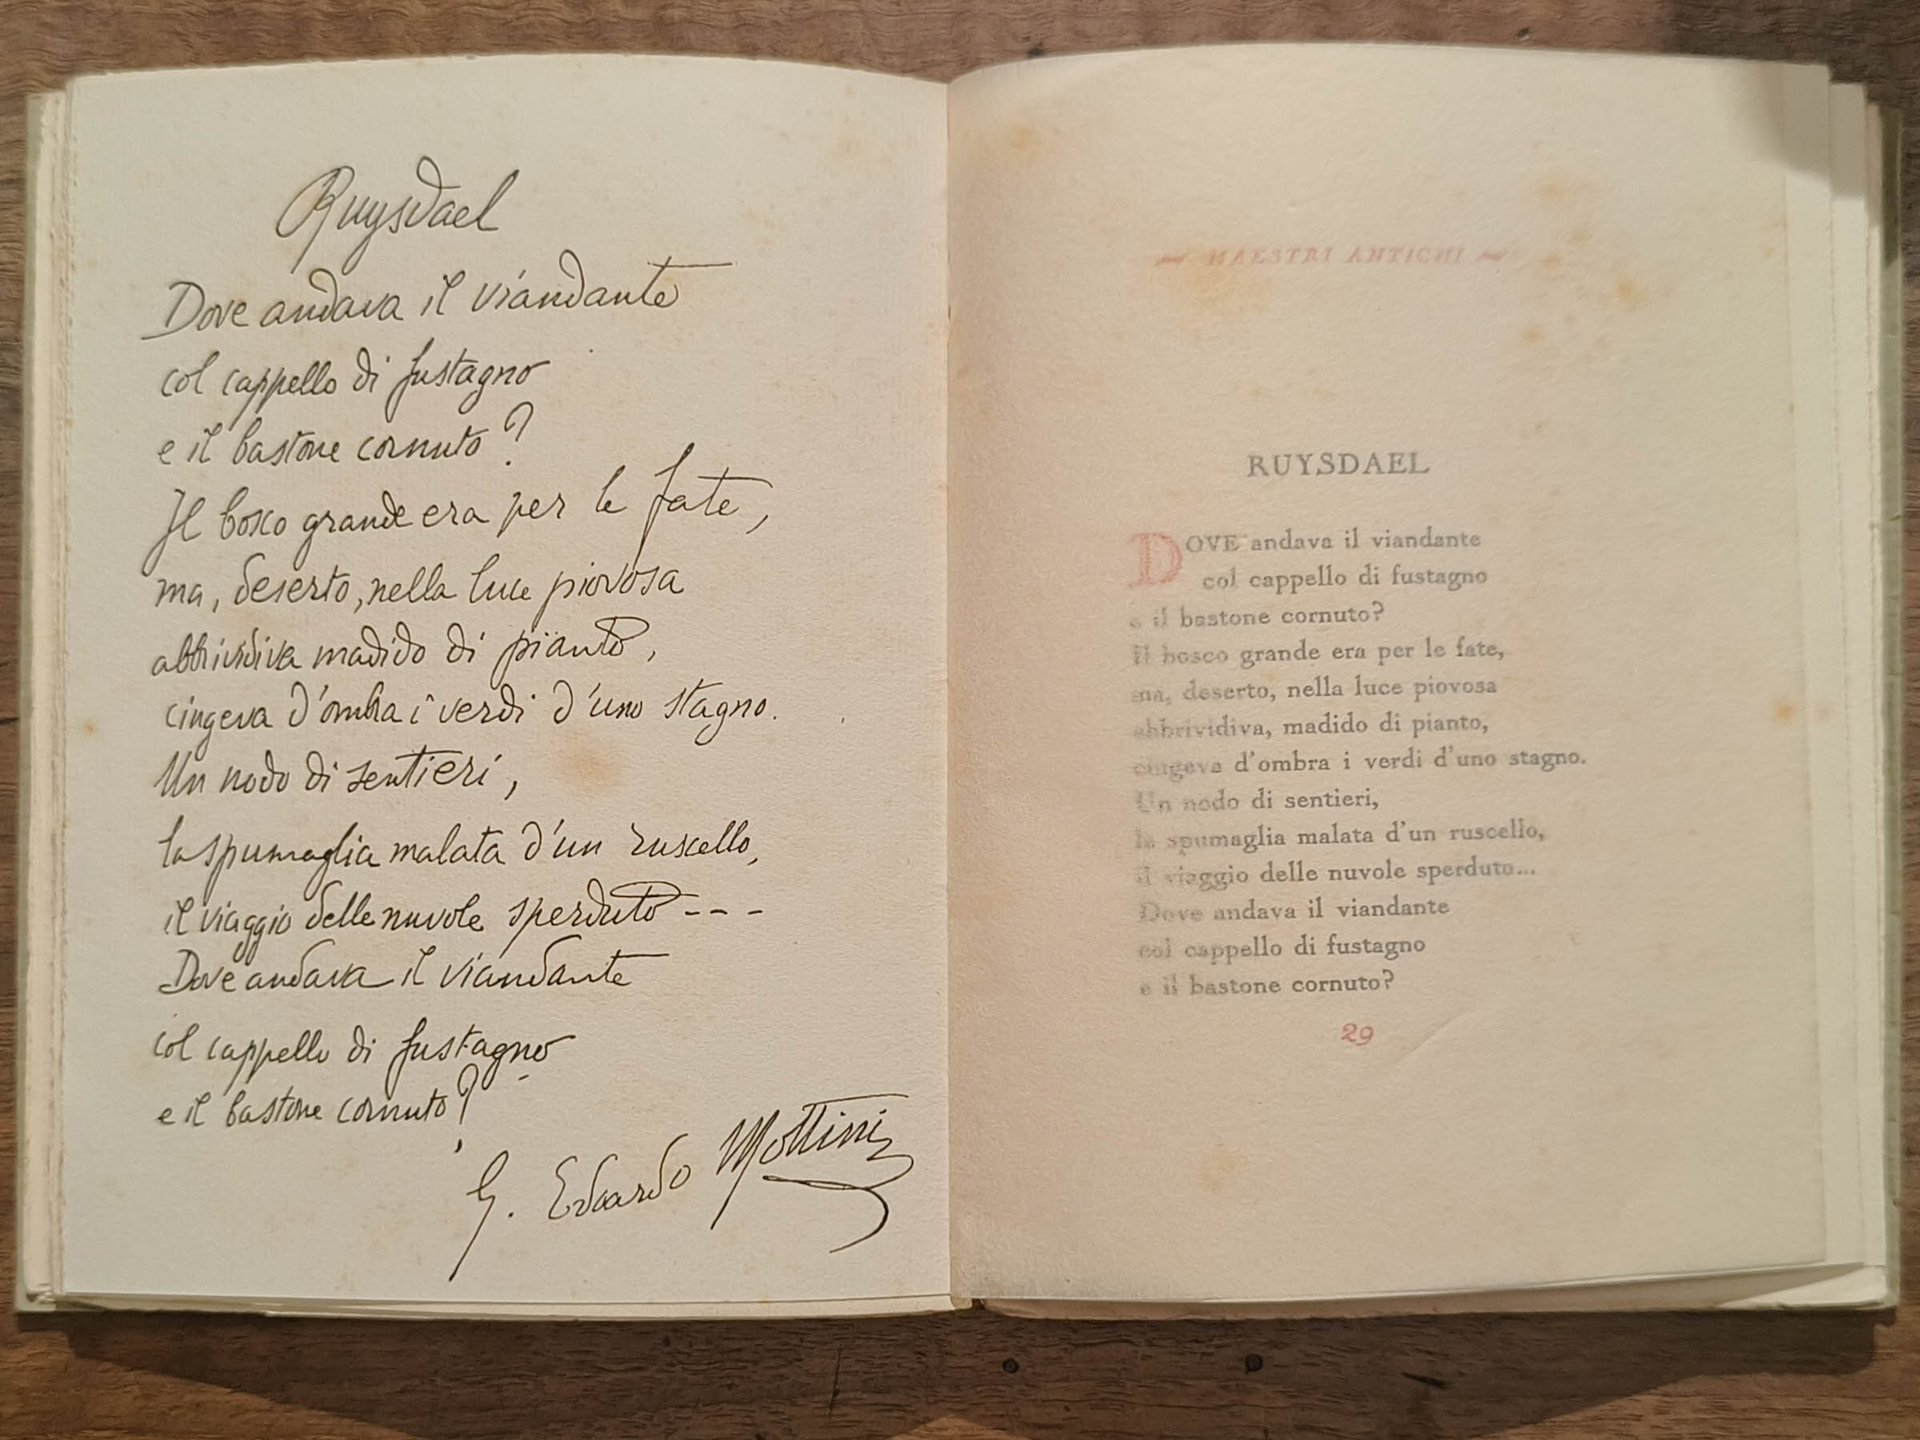 Ruysdael
Dove andava il viandante
col cappello di fustagno
e il bastone cornuto?
Il bosco grande era per le fate,
ma, deserto, nella luce piovosa
abbrividiva madido di pianto,
cingeva d'ombra i verdi d'uno stagno.
Un nodo di sentieri,
la spumaglia malata d'un ruscello,
il viaggio delle nuvole sperduto---
Dove andava il viandante
col cappello di fustagno
e il bastone cornuto?
G. Edoardo Mottini
MAESTRI ANTICHI
RUYSDAEL
DOVE andava il viandante
col cappello di fustagno
e il bastone cornuto?
Il bosco grande era per le fate,
ma, deserto, nella luce piovosa
abbrividiva, madido di pianto,
cingeva d'ombra i verdi d'uno stagno.
Un nodo di sentieri,
la spumaglia malata d'un ruscello,
il viaggio delle nuvole sperduto...
Dove andava il viandante
col cappello di fustagno
e il bastone cornuto?
29